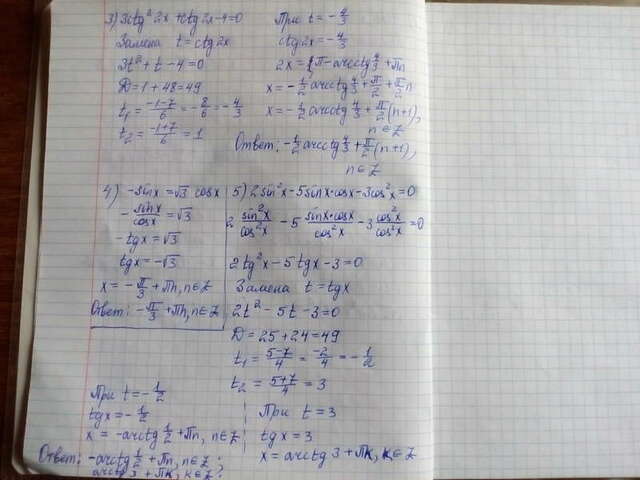 3) 3ctg² 2x + ctg 2x - 4 = 0
Замена t = ctg 2x
3t² + t - 4 = 0
D = 1 + 48 = 49
t₁ = (-1-7)/6 = -8/6 = -4/3
t₂ = (-1+7)/6 = 1
При t = -4/3
ctg 2x = -4/3
2x = π - arcctg 4/3 + πn
x = -1/2 arcctg 4/3 + π/2 + π/2 n
x = -1/2 arcctg 4/3 + π/2 (n+1),
n ∈ Z
Ответ: -1/2 arcctg 4/3 + π/2 (n+1),
n ∈ Z
4) -sin x = √3 cos x
- sin x/cos x = √3
-tg x = √3
tg x = -√3
x = -π/3 + πn, n ∈ Z
Ответ: -π/3 + πn, n ∈ Z
5) 2 sin² x - 5 sin x · cos x - 3 cos² x = 0
2 sin² x/cos² x - 5 sin x · cos x/cos² x - 3 cos² x/cos² x = 0
2 tg² x - 5 tg x - 3 = 0
Замена t = tg x
2t² - 5t - 3 = 0
D = 25 + 24 = 49
t₁ = (5-7)/4 = -2/4 = -1/2
t₂ = (5+7)/4 = 3
При t = -1/2
tg x = -1/2
x = -arctg 1/2 + πn, n ∈ Z
При t = 3
tg x = 3
x = arctg 3 + πk, k ∈ Z
Ответ: -arctg 1/2 + πn, n ∈ Z;
arctg 3 + πk, k ∈ Z